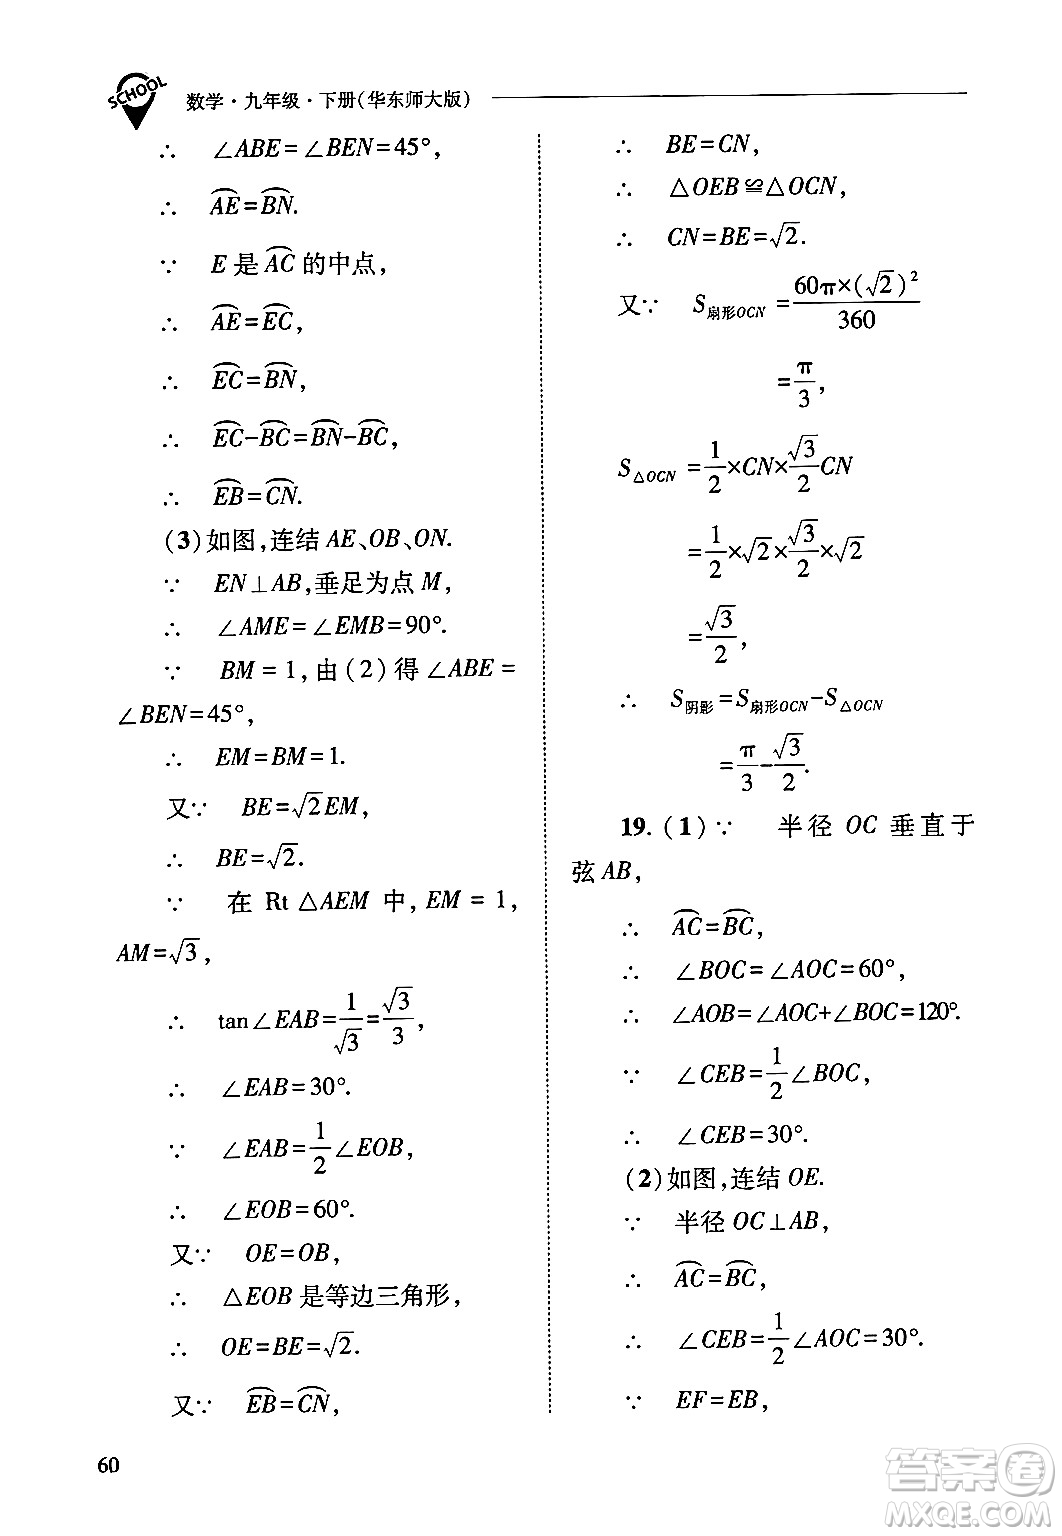 SCHOOL
数学·九年级·下册(华东师大版)
∴ ∠ABE=∠BEN=45°,
∴ A͡E=B͡N.
∵ E 是 A͡C 的中点,
∴ A͡E=E͡C,
∴ E͡C=B͡N,
∴ E͡C-B͡C=B͡N-B͡C,
∴ E͡B=C͡N.
(3)如图,连结 AE、OB、ON.
∵ EN⊥AB,垂足为点 M,
∴ ∠AME=∠EMB=90°.
∵ BM=1,由(2)得∠ABE=
∠BEN=45°,
∴ EM=BM=1.
又∵ BE=√2EM,
∴ BE=√2.
∵ 在 Rt△AEM 中,EM=1,
AM=√3,
∴ tan∠EAB=1/√3=√3/3,
∴ ∠EAB=30°.
∵ ∠EAB=1/2∠EOB,
∴ ∠EOB=60°.
又∵ OE=OB,
∴ △EOB 是等边三角形,
∴ OE=BE=√2.
又∵ E͡B=C͡N,
∴ BE=CN,
∴ △OEB≌△OCN,
∴ CN=BE=√2.
又∵ S扇形OCN=60π×(√2)²/360
=π/3,
S△OCN=1/2×CN×√3/2CN
=1/2×√2×√3/2×√2
=√3/2,
∴ S阴影=S扇形OCN-S△OCN
=π/3-√3/2.
19. (1)∵ 半径 OC 垂直于
弦 AB,
∴ A͡C=B͡C,
∴ ∠BOC=∠AOC=60°,
∴ ∠AOB=∠AOC+∠BOC=120°.
∵ ∠CEB=1/2∠BOC,
∴ ∠CEB=30°.
(2)如图,连结 OE.
∵ 半径 OC⊥AB,
∴ A͡C=B͡C,
∴ ∠CEB=1/2∠AOC=30°.
∵ EF=EB,
60
答案圈
MXQE.COM